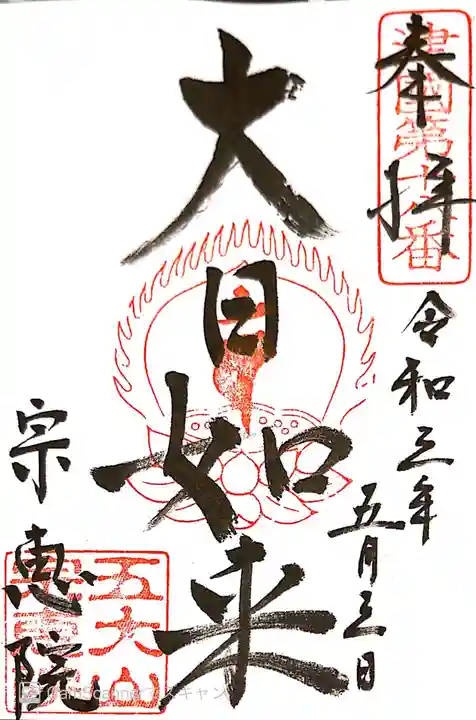 奉拝
令和三年
五月三日
大日如来
宗恵院
五大山